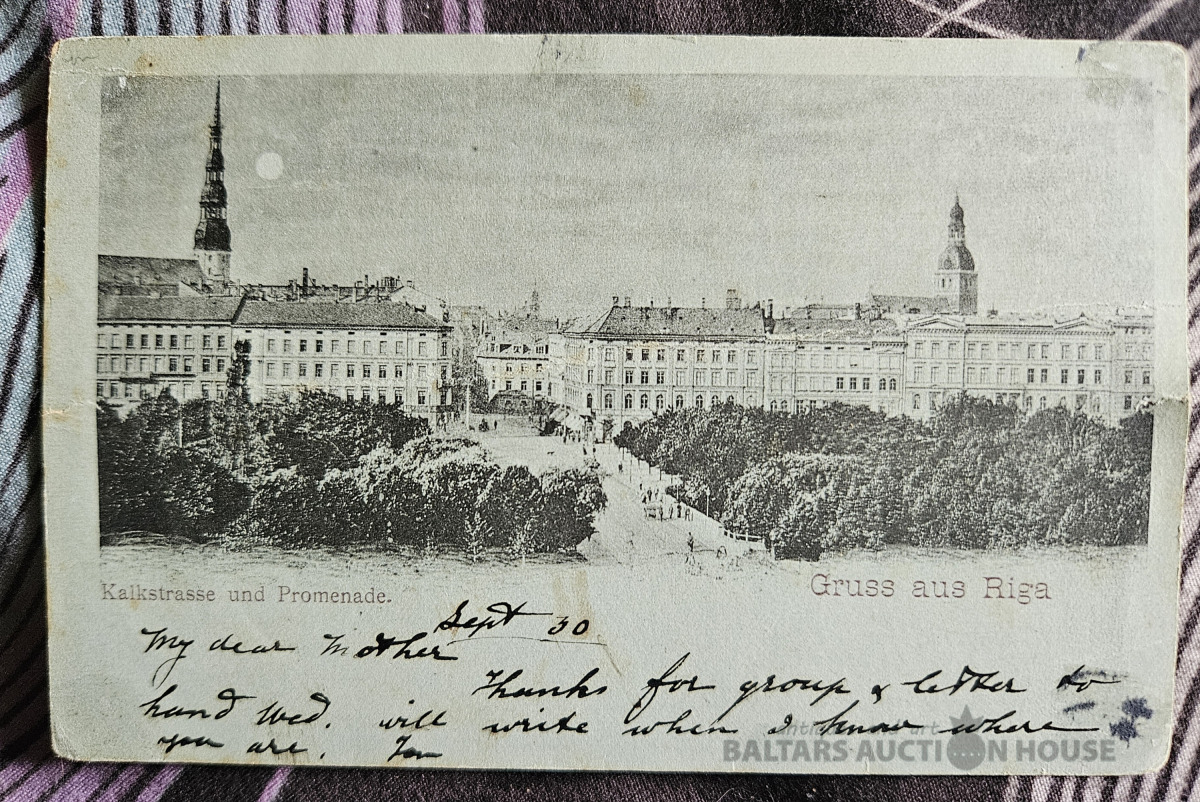 Kalkstrasse und Promenade.
Gruss aus Riga
Sept 30
My dear Mother
Thanks for group & letter to
hand Wed. will write when I know where
you are.
art
BALTARS AUCTION HOUSE